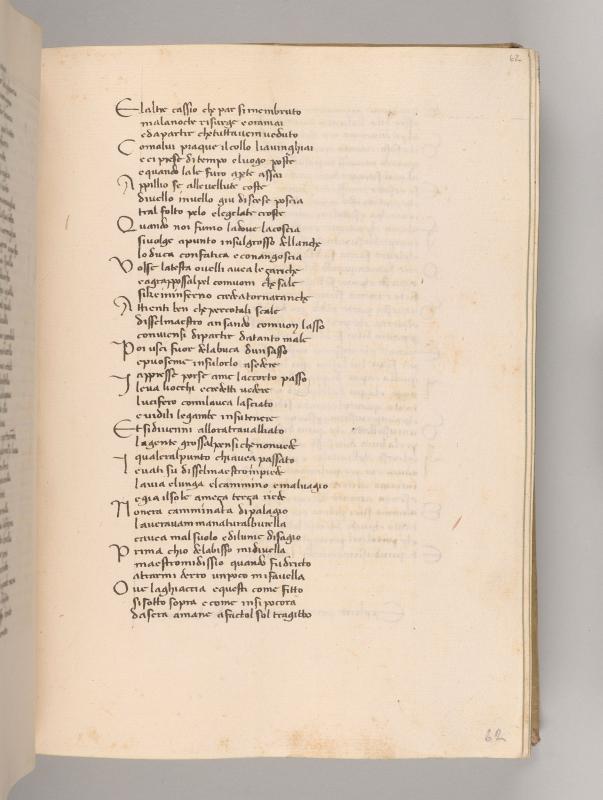 62
E laltre cassio che par si membruto
malanocte risurge eoramai
eda partir chetuttavem veduto
C omalui piaque ilcollo liavinghiai
eei prese di tempo eluogo poste
equando lale furo aperte assai
A ppilio se allevellute coste
divello invello giu discese poscia
tral folto pelo elegelate croste
Q uando noi fumo ladove lacoscia
sivolge apunto insulgrosso dellanche
lo duca confatica econangoscia
V olse latesta ovelli avea le zanche
eagrappossalpel comuom che sale
siche ininferno credea tornaranche
A ttienti ben che percotali scale
disselmaestro ansando comuom lasso
conviensi dipartir datanto male
P oi usci fuor delabuca dunsasso
epuoseme insulorlo asedere
appresse porse ame laccorto passo
I leva liocchi ecredetti vedere
lucifero comilavea lasciato
evidili legambe insu tenere
E t sidivenni alloratravalliato
lagente grossalpensi chenonvede
I qualeralpunto chiavea passato
levati su disselmaestro inpiede
lavia elunga elcammino emalvagio
egia ilsole ameza terza riede
N onera camminata dipalagio
laveravam manaturalburella
cavea mal suolo edilume disagio
P rima chio delabisso midivella
maestromidissio quando fu dricto
atrarmi derro unpoco mi favella
O ve laghiaccia equesti come fitto
si sotto sopra e come insi pocora
dasera amane a factol sol tragitto
62